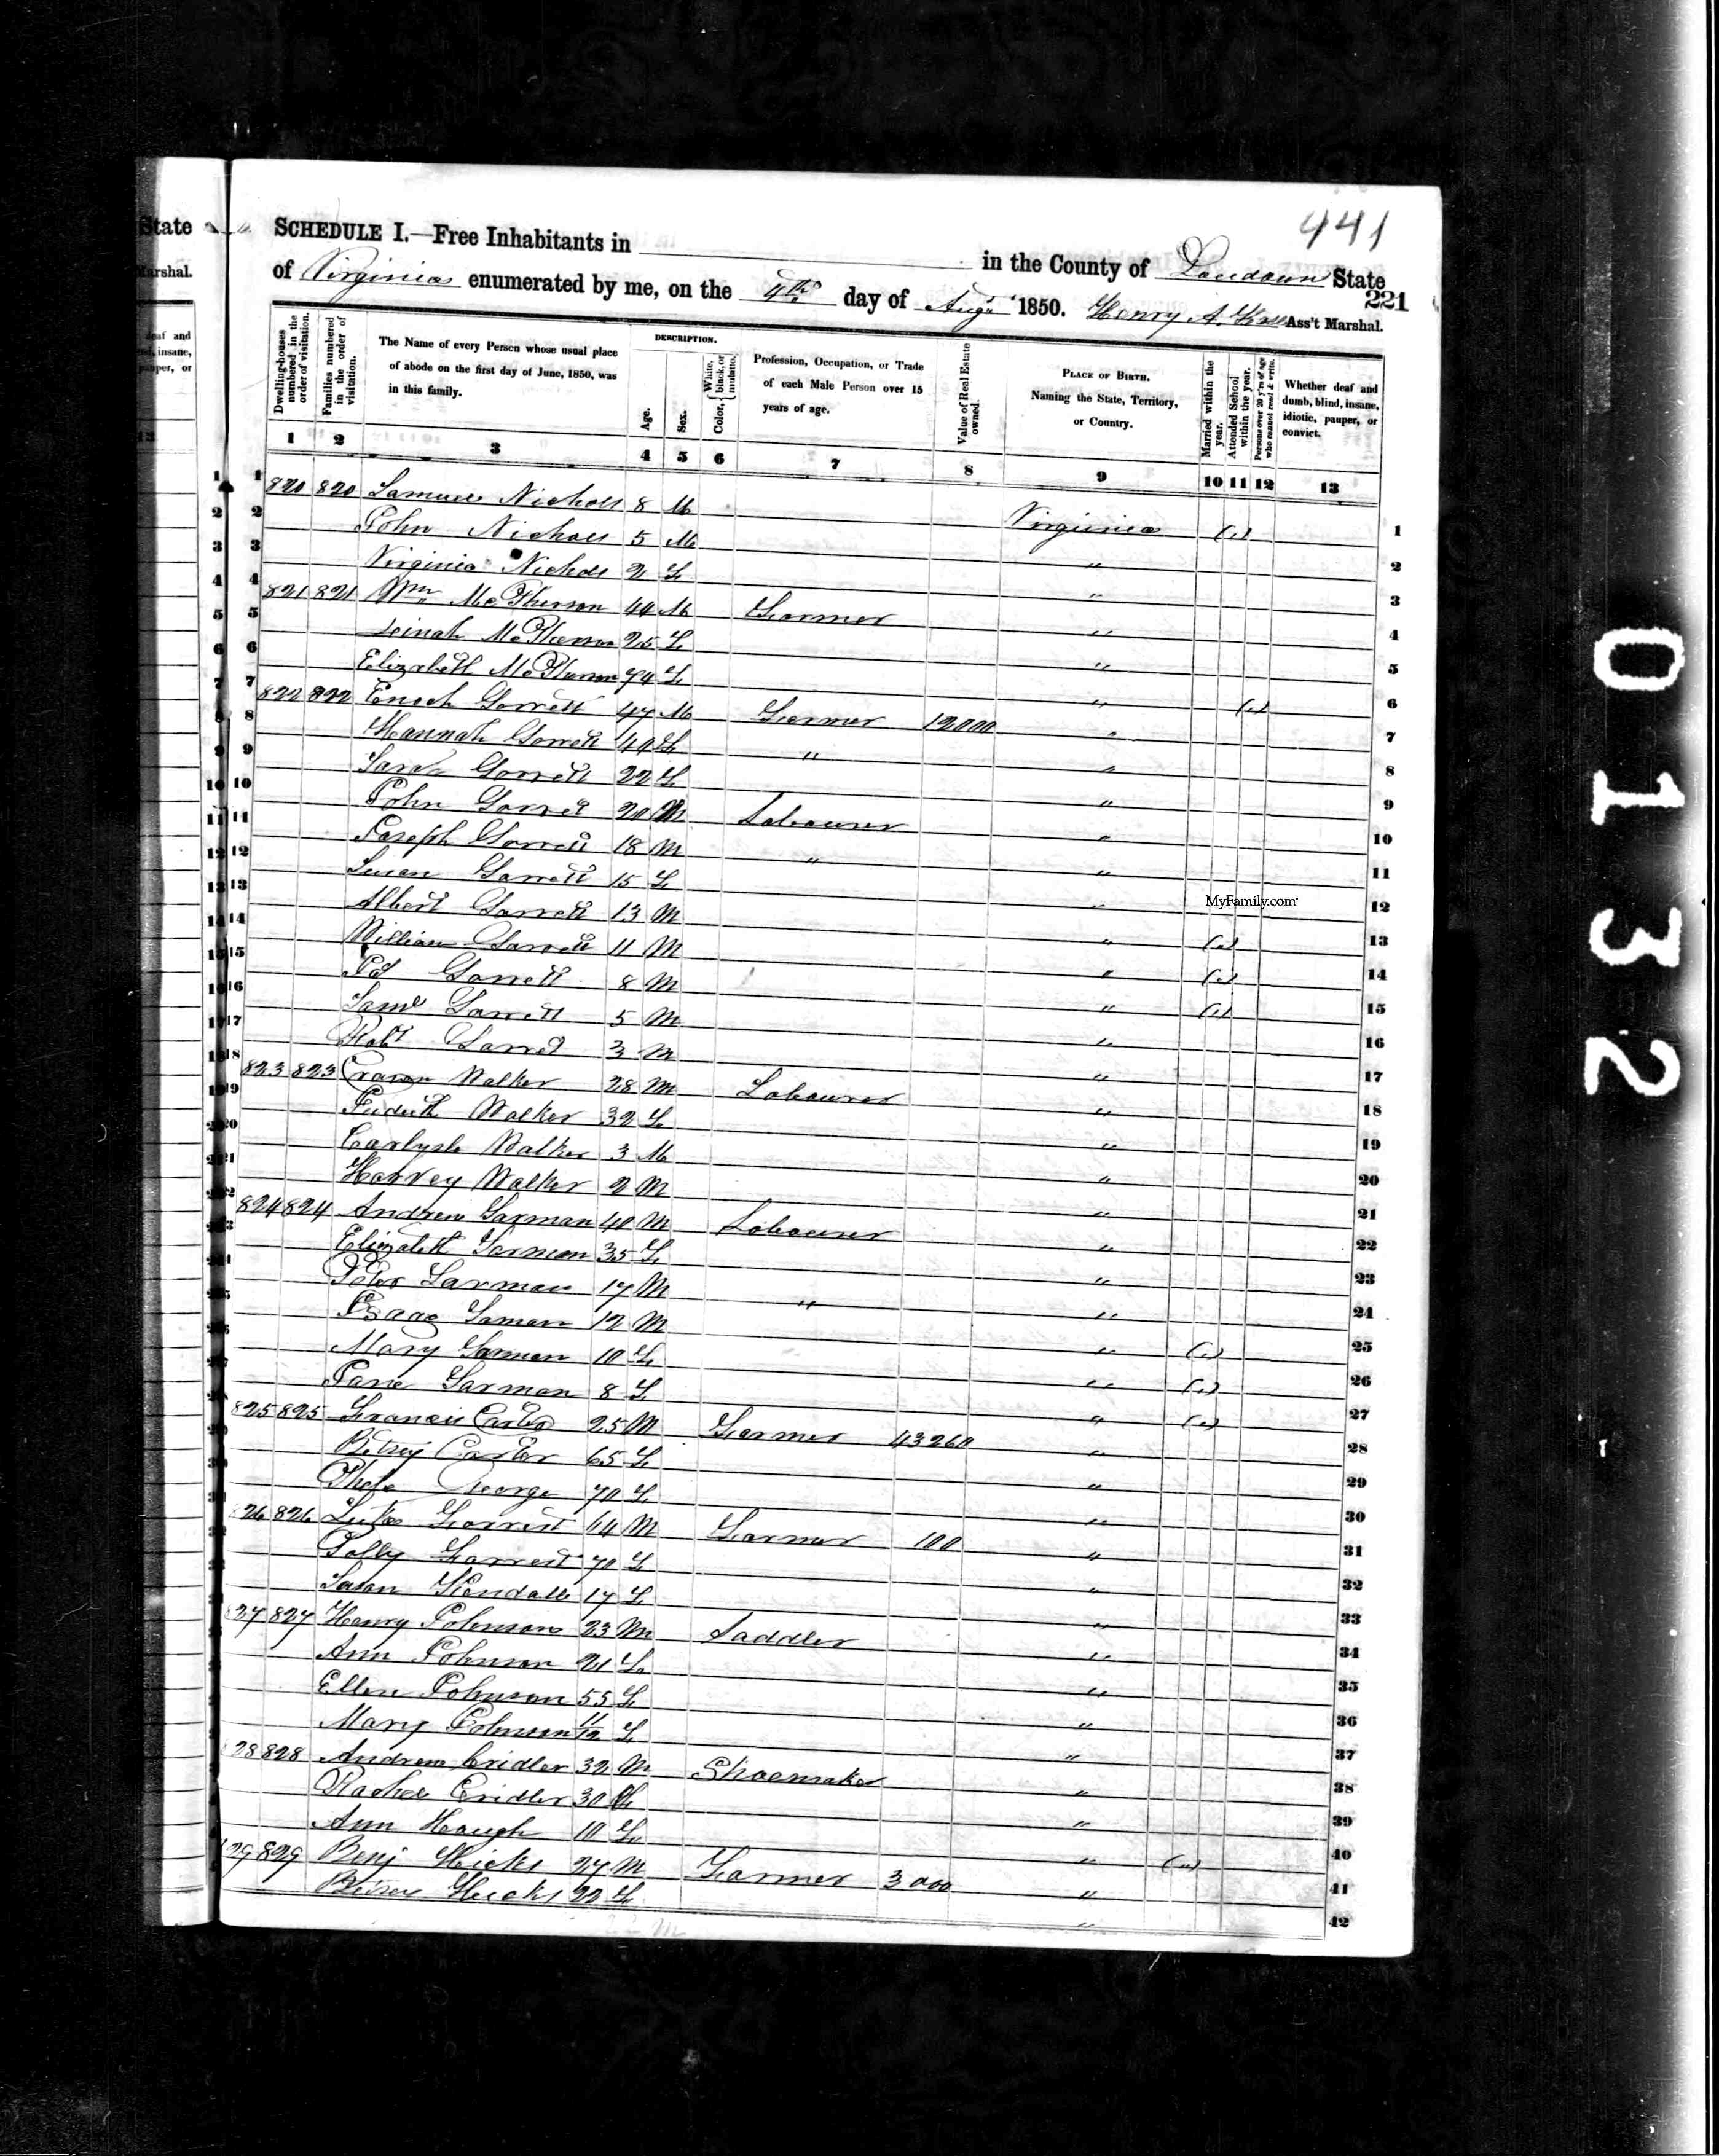 441
State
SCHEDULE I.—Free Inhabitants in in the County of Loudoun State
Marshal.
of Virginia enumerated by me, on the 4th day of Augt 1850. Henry A. Ass't Marshal.
221
deaf and
insane,
pauper, or
13
Dwelling-houses numbered in the order of visitation.
Families numbered in the order of visitation.
The Name of every Person whose usual place of abode on the first day of June, 1850, was in this family.
DESCRIPTION.
Age.
Sex.
Color, { White, black, or mulatto.
Profession, Occupation, or Trade of each Male Person over 15 years of age.
Value of Real Estate owned.
PLACE OF BIRTH. Naming the State, Territory, or Country.
Married within the year.
Attended School within the year.
Persons over 20 y'rs of age who cannot read & write.
Whether deaf and dumb, blind, insane, idiotic, pauper, or convict.
1 2 3 4 5 6 7 8 9 10 11 12 13
1 820 820 Samuel Nichols 8 M Virginia (,) 1
2 John Nichols 5 M " 2
3 Virginia Nichols 2 F " 3
4 821 821 Wm McPherson 44 M Farmer " 4
5 McPherson 25 F " 5
6 Elizabeth McPherson 74 F " (,) 6
7 822 822 Enoch Garrett 47 M Farmer 12000 " 7
8 Hannah Garrett 40 F " " 8
9 Sarah Garrett 22 F " 9
10 John Garrett 20 M Labourer " 10
11 Joseph Garrett 18 M " " 11
12 Susan Garrett 15 F " 12
MyFamily.com
13 Albert Garrett 13 M " (,) 13
14 William Garrett 11 M " (,) 14
15 Garrett 8 M " (,) 15
16 Saml Garrett 5 M " 16
17 Robt Garrett 3 M " 17
18 823 823 Craven Walker 28 M Labourer " 18
19 Judith Walker 32 F " 19
20 Carlyle Walker 3 M " 20
21 Harvey Walker 2 M " 21
824 824 Andrew Garman 40 M Labourer " 22
Elizabeth Garman 35 F " 23
Peter Garman 17 M " " 24
Isaac Garman 12 M " (,) 25
Mary Garman 10 F " (,) 26
Jane Garman 8 F " (,) 27
825 825 Francis Carter 25 M Farmer 43260 " 28
Betsy Carter 65 F " 29
George 70 F " 30
26 826 Luke Garrett 64 M Farmer 100 " 31
Polly Garrett 70 F " 32
Susan Kendall 17 F " 33
27 827 Henry Johnson 23 M Saddler " 34
Ann Johnson 21 F " 35
Ellen Johnson 55 F " 36
Mary Johnson 11/12 F " 37
28 828 Andrew Cridler 32 M Shoemaker " 38
Rachel Cridler 30 F " 39
Ann Hough 10 F " (,) 40
29 829 Benj Hicks 27 M Farmer 3000 " 41
Betsey Hicks 22 F " 42
0132